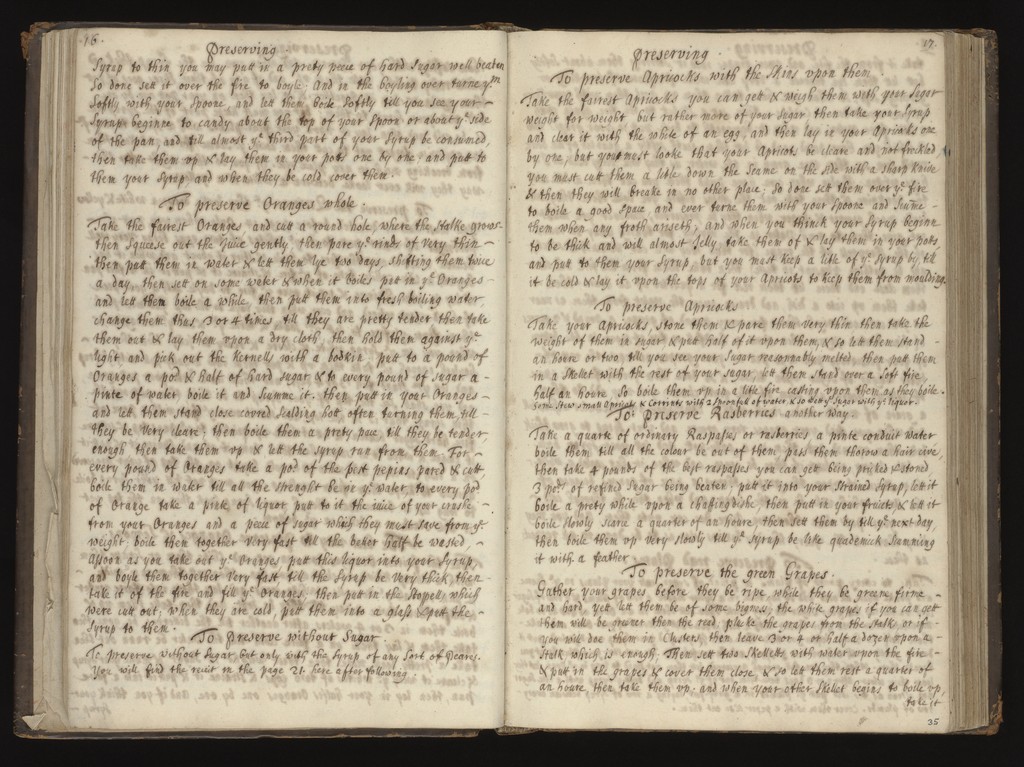 16.
Preserving.
Syrup to thin you may putt in a pretty peece of hard Sugar well beaten
So done sett it over the fire to boyle. And in the boyling over turne ym
Softly with your Spoone, and lett them boile Softly till you see your
Syrup beginne to candy about the top of your Spoon or about ye side
of the pan, and till almost ye third part of your Syrup be consumed,
then take them up & lay them in your pots one by one, and putt to
them your Syrup and when they be cold cover them.
To preserve Oranges whole.
Take the fairest Oranges, and cutt a round hole, where the stalke grows
then squeese out the juice gently, then pare ye rinds of very thin
then putt them in water & lett them lye two days, shifting them twice
a day, then sett on some water & when it boiles put in ye Oranges
and lett them boile a while, then putt them into fresh boiling water,
change them thus 3 or 4 times, till they are pretty tender then take
them out & lay them upon a dry cloth, then hold them against ye
light and pick out the kernells with a bodkin putt to a pound of
Oranges a pod. & half of hard sugar, & to every pound of sugar a
pinte of water boile it and scumme it: then putt in your Oranges
and lett them stand close covred scalding hott often turning them, till
they be very cleare: then boile them a pretty pace till they be tender,
enough then take them up & lett the syrup run from them. For
every pound of Oranges take a pod of the best pepins pared & cutt
boile them in water till all the strenght be in ye water, to every pod
of Orange take a pinte of liquor putt to it the iuice of your
from your Oranges and a piece of sugar which they must have from ye
weight, boile then together very fast till the better half be wasted,
Assoon as you take out ye Oranges putt this liquor into your syrup
and boyle them together very fast till the syrup be very thick then
take it of the fire and fill ye Oranges, then putt in the stopells which
were cutt out, when they are cold, putt them into a glass & putt the
Syrup to them.
To preserve without Sugar.
To preserve without Sugar but only with the Syrup of any Sort of Peares.
You will find the receit in the page 21. here after following.
17.
Preserving.
To preserve Apricocks with the Skins upon them
Take the fairest Apricocks you can gett & weigh them with your Suger
weight for weight but rather more of your Sugar, then take your Syrup
and clear it with the white of an egg, and then lay in your Apricocks one
by one, but you must looke that your Apricots be cleare and not freckled
you must cutt them a litle down the Seame on the side with a sharp knife
& then they will breake in no other place; So done sett them over ye fire
to boile a good space and ever turne them with your Spoone and Scume
them when any froth ariseth, And when you thinck your Syrup beginne
to be thick and well almost Jelly take them of & lay them in your pots
and putt to them your Syrup but you must keep a litle of ye Syrup by, till
it be cold & lay it upon the tops of your Apricots to keep them from moulding.
To preserve Apricocks
Take your Apricocks, stone them & pare them very thin then take the
weight of them in sugar & putt half of it upon them, & so lett them stand
an houre or two, till you see your Sugar reasonnably melted, then putt them
in a skellet with the rest of your sugar, lett them stand over a Soft fire
half an houre, So boile them up in a litle fire casting upon them as they boile.
some stew small Apricoks & Corrints with 2 Spoonfuls of water & so wett ye Sugar with ye liquor.
To preserve Rasberries another way.
Take a quarte of ordinery Raspasses or rasberries a pinte conduit water
boile them till all the colour be out of them pass them thorow a hair cive,
then take 4 pounds of the best raspasses you can gett being pricked & stoned
3 pods. of refined Sugar being beaten, putt it into your strained Syrup, lett it
boile a prety while upon a chafing dishe, then putt in your fruicts & lett it
boile slowly scarce a quarter of an houre, then sett them by till ye next day,
then boile them up very slowly till ye syrup be like quademick scumming
it with a feather.
To preserve the green Grapes.
Gather your grapes before they be ripe while they be greene, firme
and hard, yett lett them be of some bigness, the white grapes if you can gett
them will be greener then the reed, plucke the grapes from the stalk, or if
you will doe them in Clusters, then leave 3 or 4 or half a dozen upon a
stalk which is enough. Then sett two Skelletts with water upon the fire
& putt in the grapes & cover them close, & so lett them rest a quarter of
an houre then take them up. and when your other Skellet begins to boile up,
take it
35